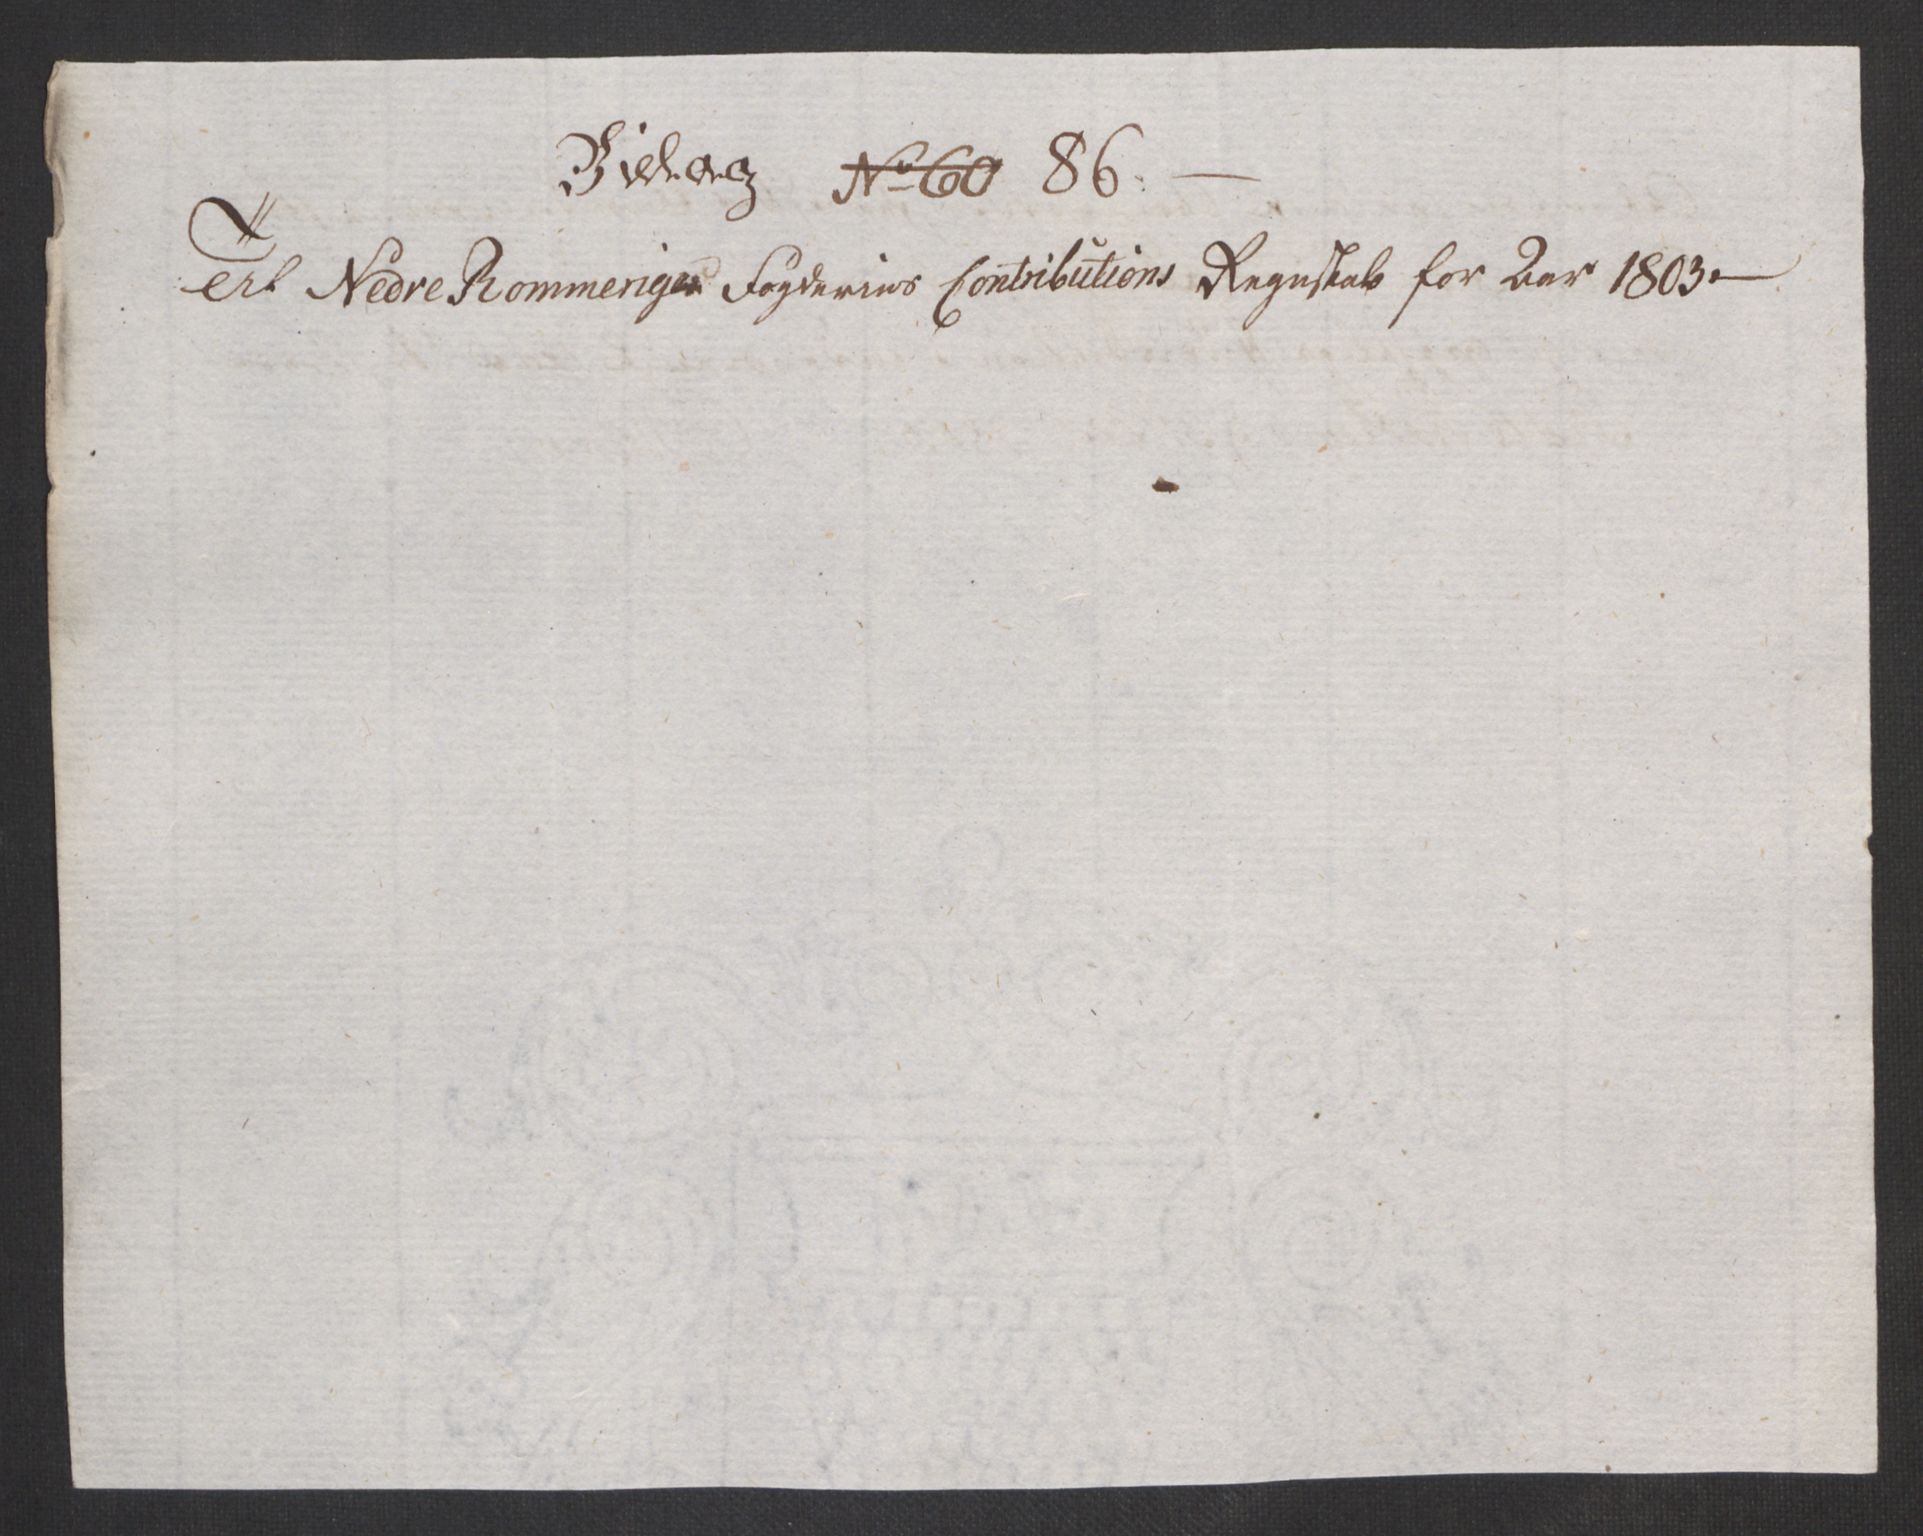 Bielag N° 60 86. —
Til Nedre Rommeriges Fogderies Contributions Regnskab for Aar 1803. —